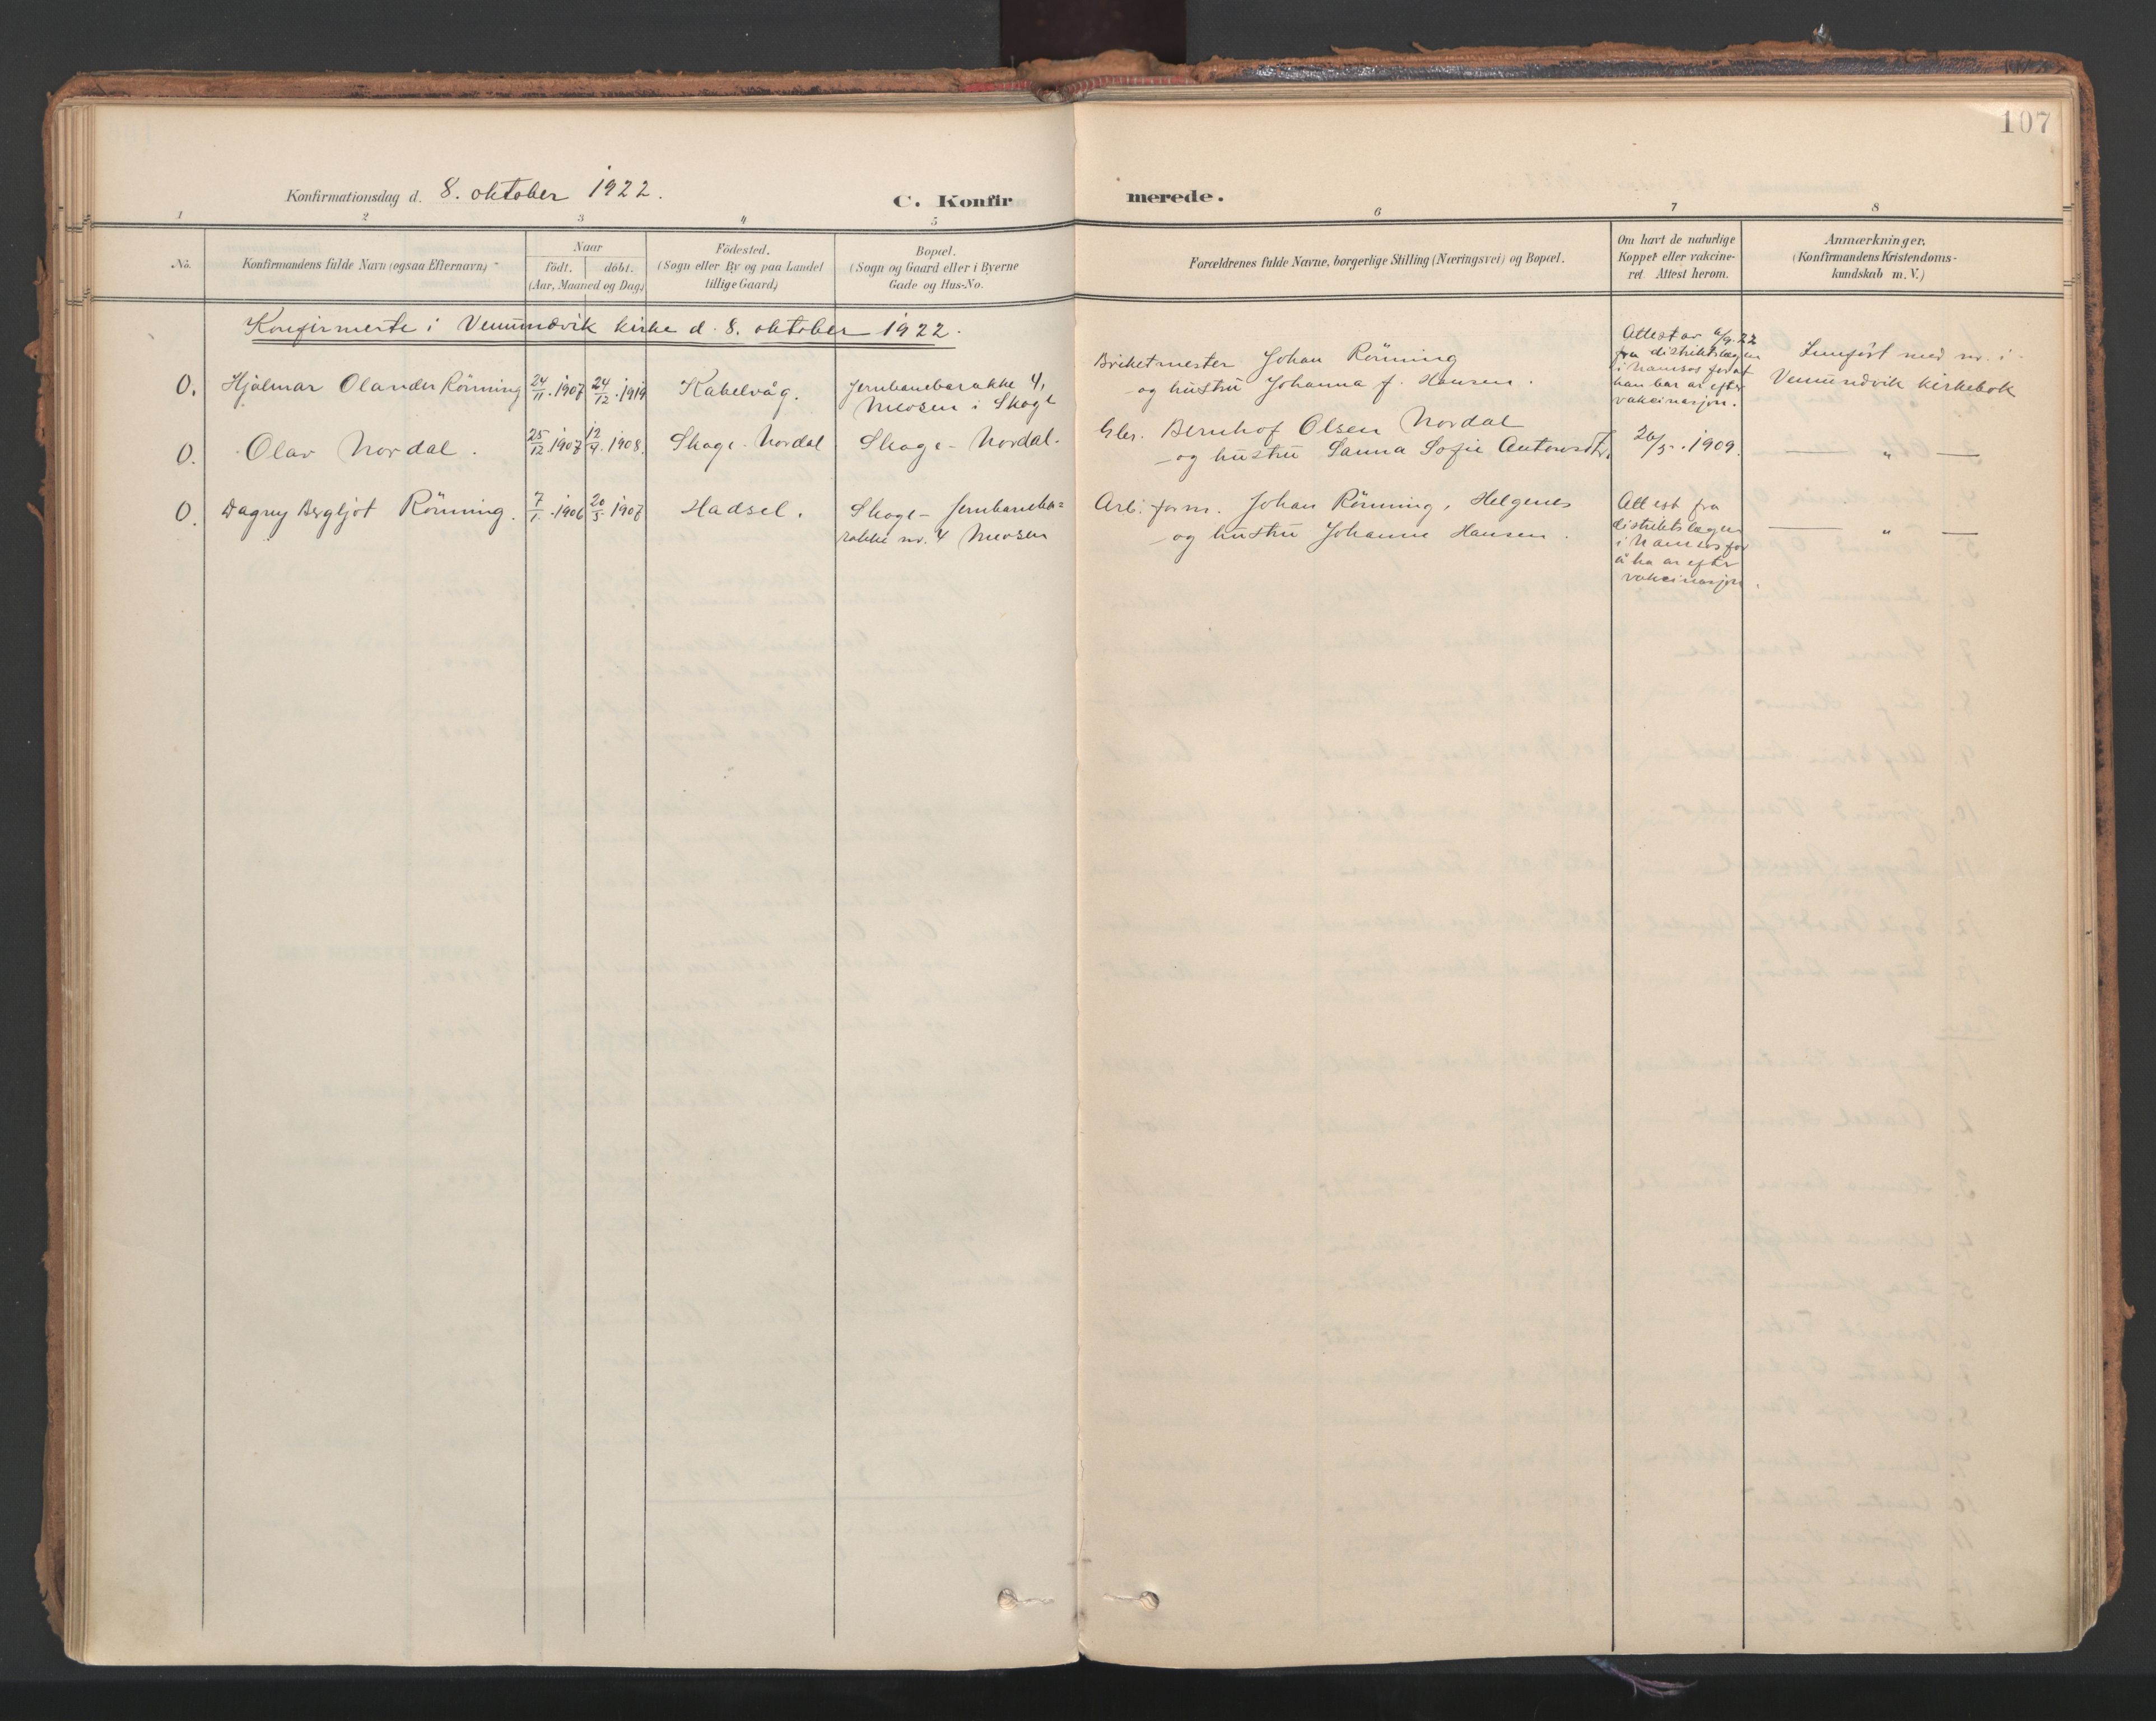 107
Konfirmationsdag d. 8. oktober 1922.
C. Konfirmerede.
1 2 3 4 5 6 7 8
No.
Konfirmandens fulde Navn (ogsaa Efternavn)
Naar
födt. döbt.
(Aar, Maaned og Dag)
Födested.
(Sogn eller By og paa Landet
tillige Gaard)
Bopæl.
(Sogn og Gaard eller i Byerne
Gade og Hus-No.
Forældrenes fulde Navne, borgerlige Stilling (Næringsvei) og Bopæl.
Om havt de naturlige
Kopper eller vakcine-
ret. Attest herom.
Anmærkninger.
(Konfirmandens Kristendoms-
kundskab m. V.)
Konfirmerte i Vemundvik kirke d. 8. oktober 1922.
0. Hjalmar Olander Rönning
24/11.1907 24/12.1919
Kabelvåg.
Jernbanebarakke 4,
Meosen i Skage
Johan Rönning
og hustru Johanna f. Hansen.
Attest av 6/9.22
fra distriktslægen
i Namsos for at
han bar ar efter
vakcinasjon.
Innfört med nr. i
Vemundvik kirkebok
0. Olav Nordal.
25/12.1907 12/9.1908.
Skage Nordal
Skage - Nordal.
Gbr. Bernhof Olsen Nordal
og hustru Sanna Sofie Antonsdtr.
26/5.1909.
— " —
0. Dagny Bergljot Rönning.
7/1.1906 20/5.1907
Hadsel.
Skage - Jernbaneba=
rakke nr. 4 Meosen
Arb. form. Johan Rönning, Helgenes
og hustru Johanne Hansen.
Attest fra
distriktslægen
i Namsos for
å ha ar efter
vakcinasjon.
— " —